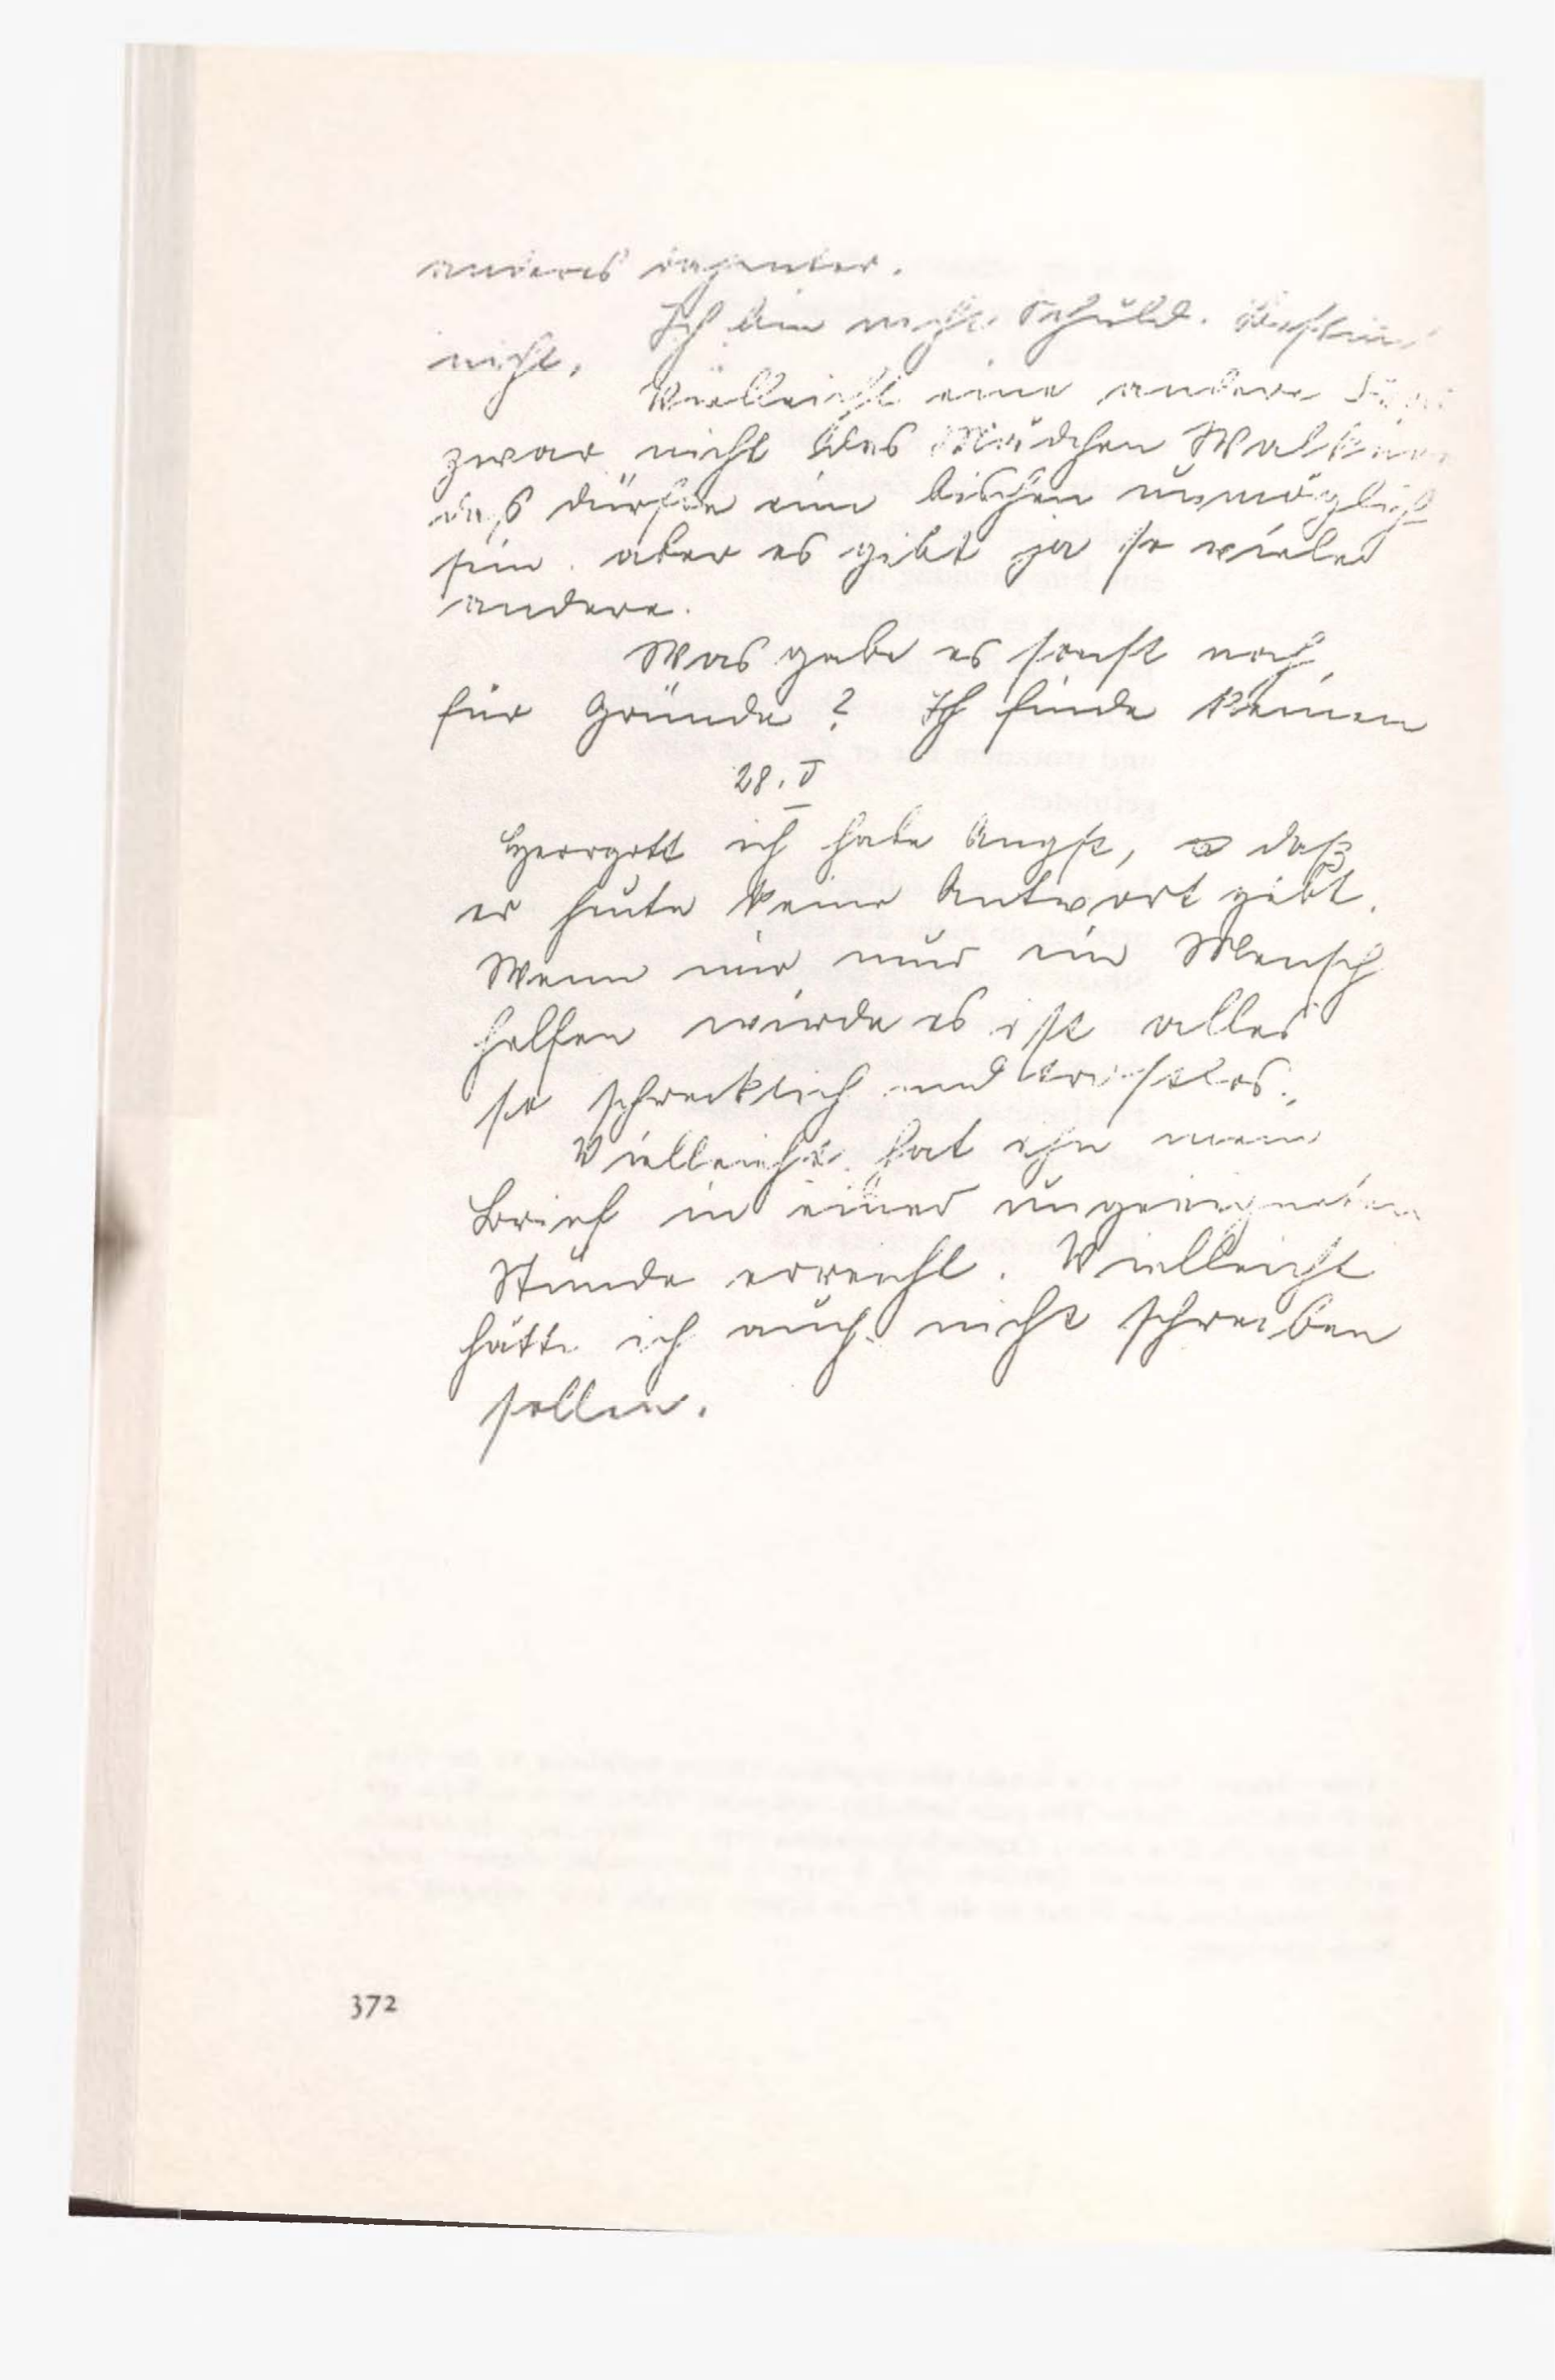 anderes dahinter.
Ich bin nicht Schuld. Bestimmt
nicht.
Vielleicht eine andere
zwar nicht das Mädchen Walküre
daß dürfte ein bischen unmöglich
sein. aber es gibt ja so viele
andere.
Was gebe es sonst noch
für Gründe? Ich finde keinen
28. V
Herrgott ich habe Angst, daß
er heute keine Antwort gibt.
Wenn mir nur ein Mensch
helfen würde es ist alles
so schrecklich und trostlos.
Vielleicht hat ihn mein
Brief in einer ungeeigneten
Stunde erreicht. Vielleicht
hätte ich auch nicht schreiben
sollen.
372